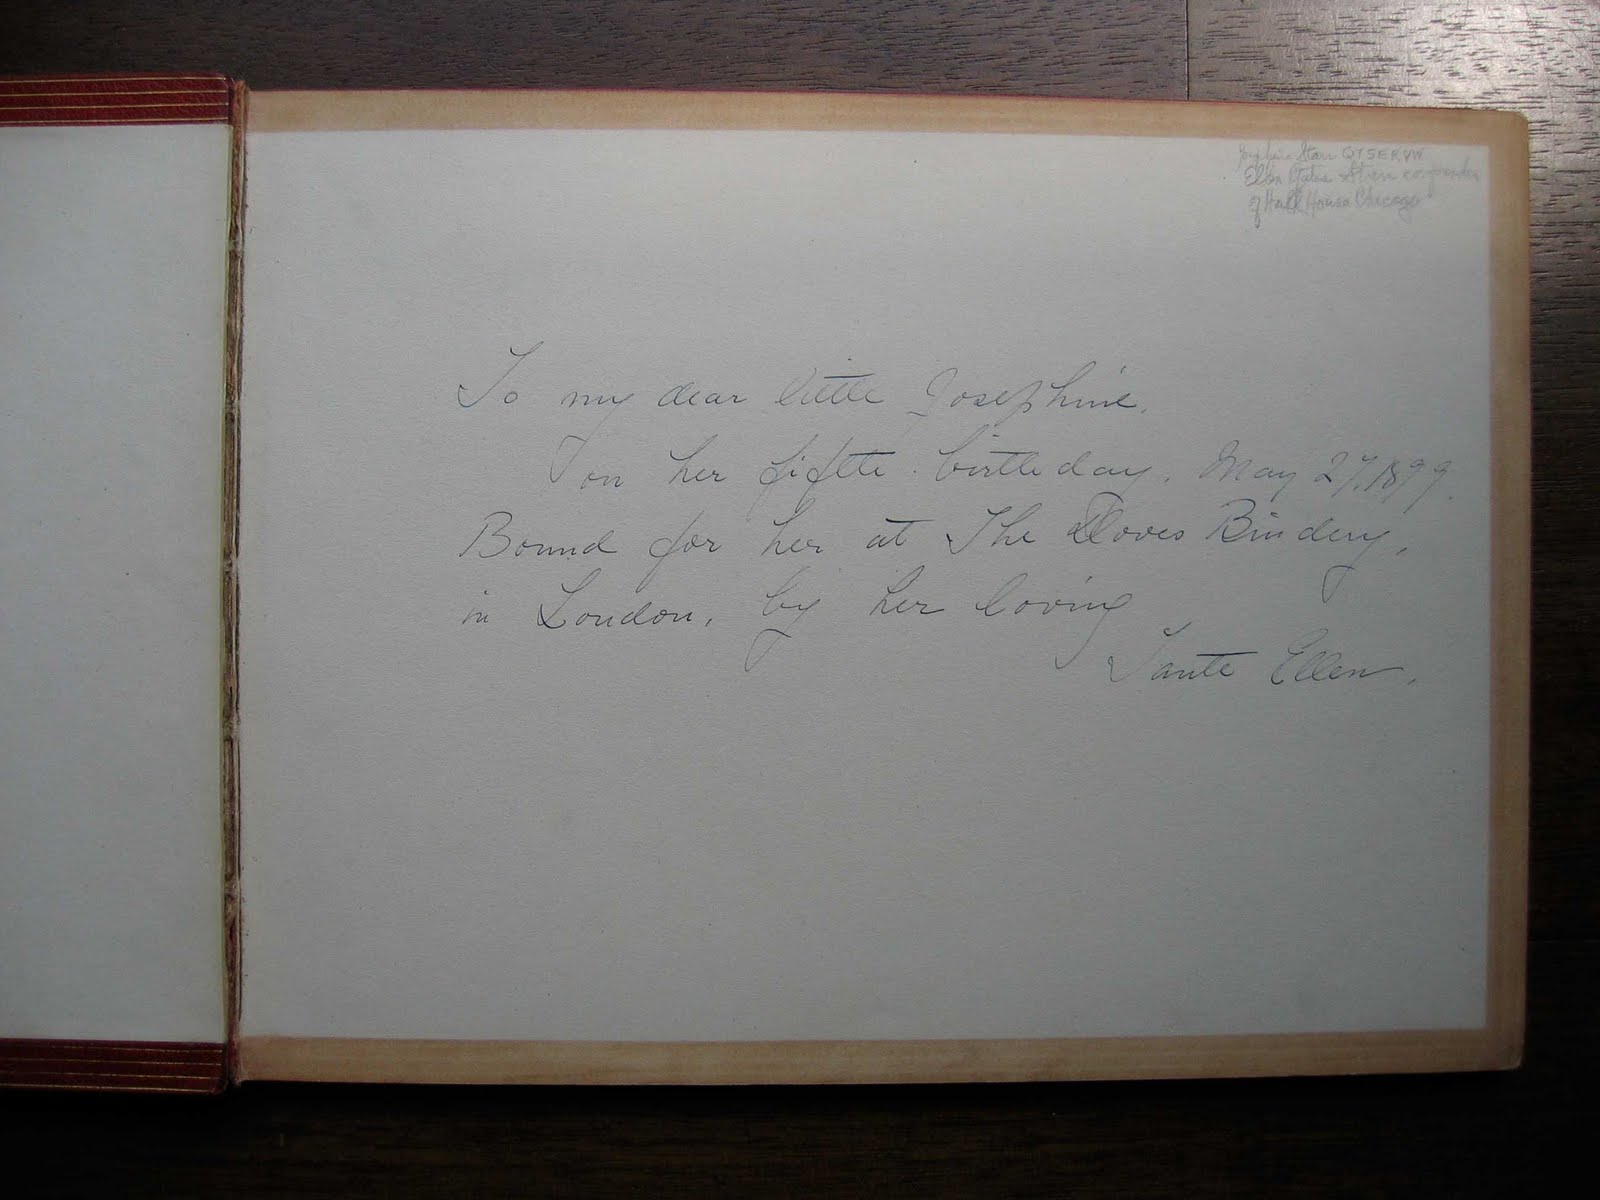 Josephine Starr
Ellen Gates Starr co-founder
of Hull House Chicago
To my dear little Josephine,
on her fifth birthday, May 27, 1899.
Bound for her at The Doves Bindery,
in London, by her loving
Tante Ellen.